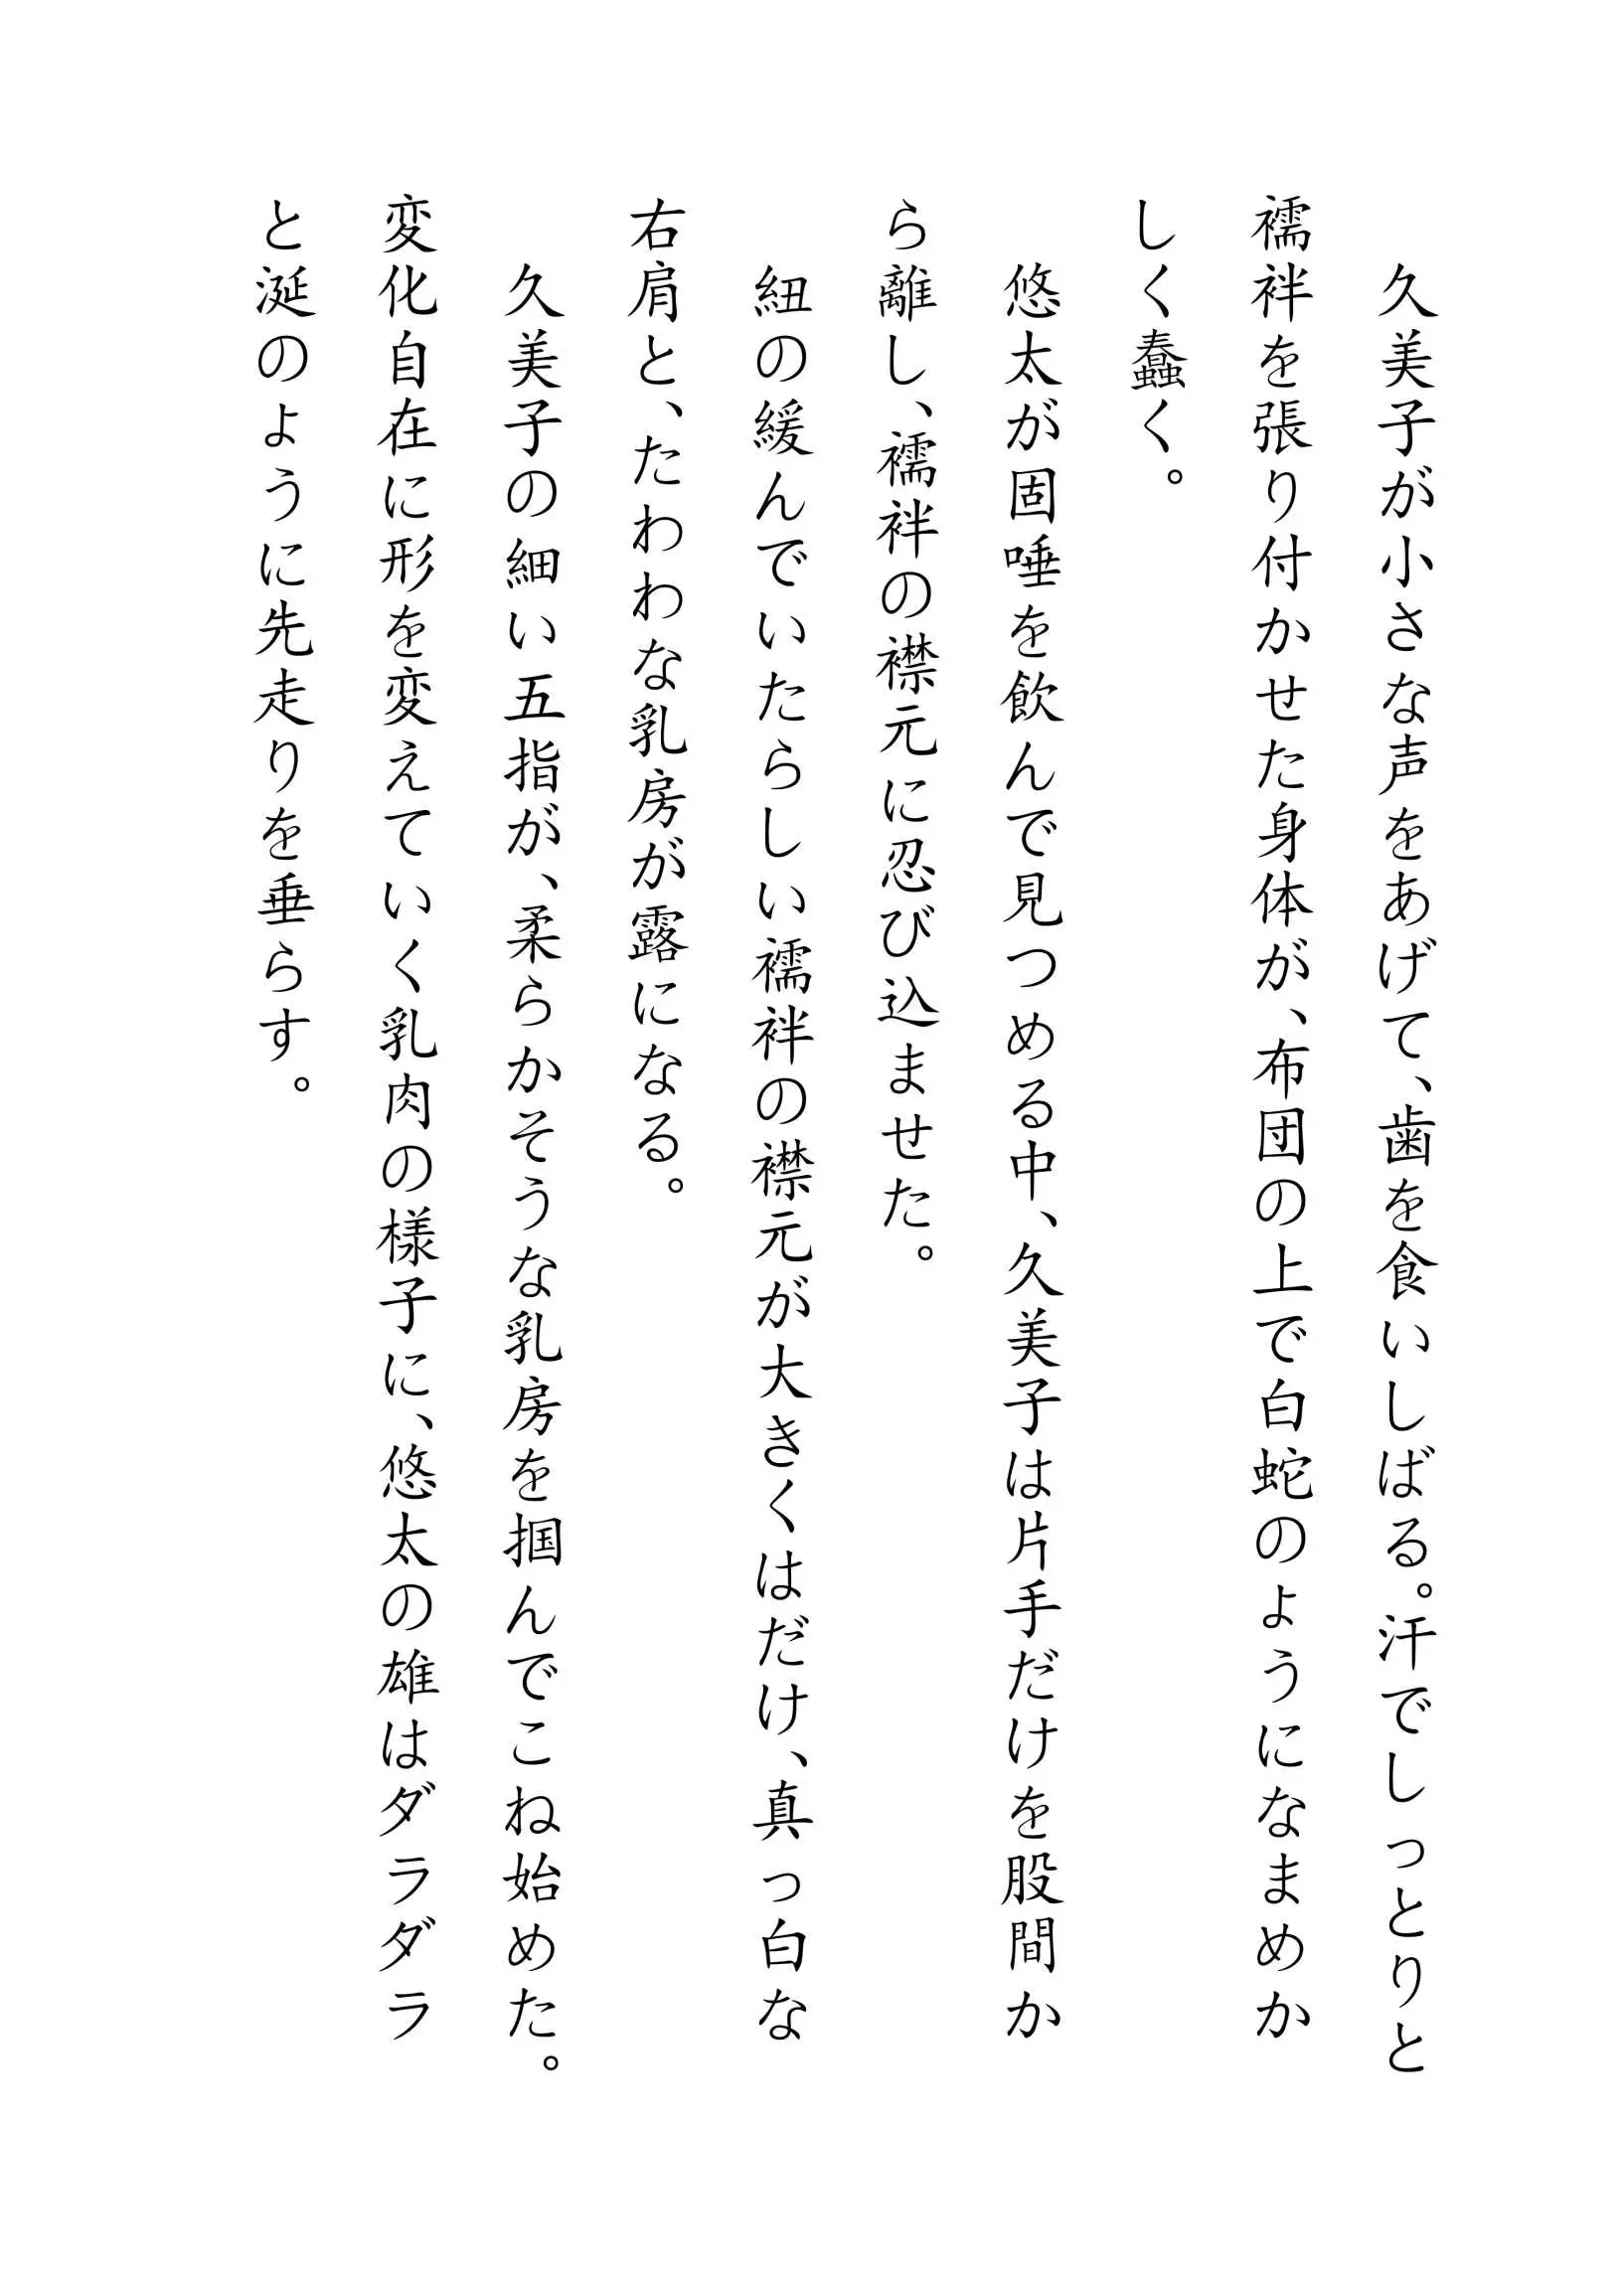 久美子が小さな声をあげて、歯を食いしばる。汗でしっとりと
襦袢を張り付かせた身体が、布団の上で白蛇のようになまめか
しく蠢く。
悠太が固唾を飲んで見つめる中、久美子は片手だけを股間か
ら離し、襦袢の襟元に忍び込ませた。
紐の緩んでいたらしい襦袢の襟元が大きくはだけ、真っ白な
右肩と、たわわな乳房が露になる。
久美子の細い五指が、柔らかそうな乳房を掴んでこね始めた。
変化自在に形を変えていく乳肉の様子に、悠太の雄はダラダラ
と涎のように先走りを垂らす。